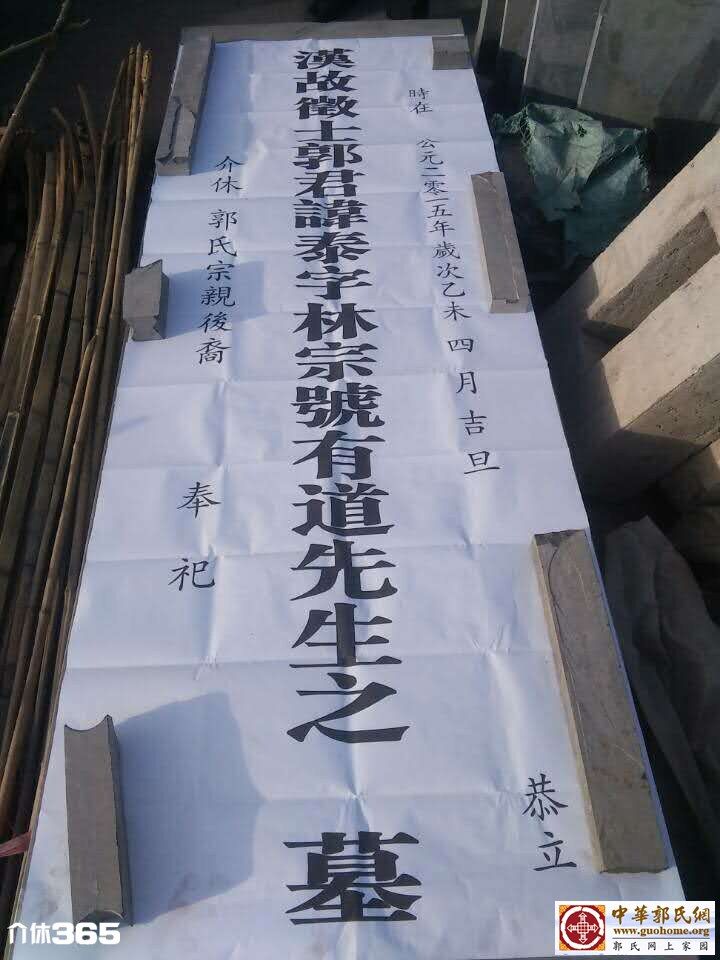 時在 公元二零一五年歲次乙未 四月吉旦 恭立
漢故徵士郭君諱泰字林宗號有道先生之 墓
介休 郭氏宗親後裔 奉祀
介休365
中華郭氏網
www.guohome.org
郭氏网上家园